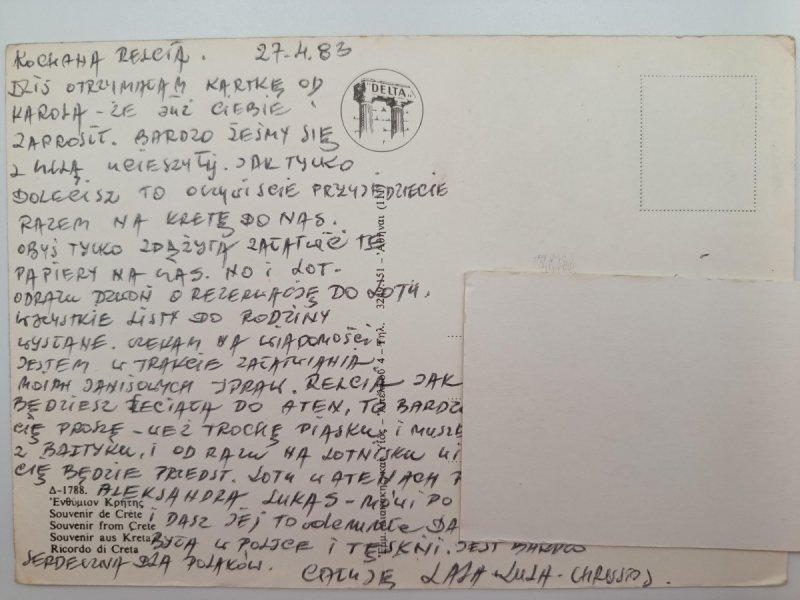 KOCHANA RELCIA. 27.4.83
DZIŚ OTRZYMAŁAM KARTKĘ OD
KAROLA - ŻE JUŻ CIEBIE
ZAPROSIŁ. BARDZO ŻEŚMY SIĘ
Z LULĄ UCIESZYŁY. JAK TYLKO
DOLECISZ TO OCZYWIŚCIE PRZYJEDZIECIE
RAZEM NA KRETĘ DO NAS.
OBYŚ TYLKO ZDĄŻYŁA ZAŁATWIĆ TE
PAPIERY NA CZAS. NO I LOT-
ODRAZU DZWOŃ O REZERWACJĘ DO LOTU.
WSZYSTKIE LISTY DO RODZINY
WYSŁANE. CZEKAM NA WIADOMOŚCI
JESTEM W TRAKCIE ZAŁATWIANIA
MOICH SPRAW. RELCIA JAK
BĘDZIESZ LECIAŁA DO ATEN, TO
CIĘ PROSZĘ - WEŹ TROCHĘ PIASKU I
Z BAŁTYKU, I OD RAZU NA LOTNISKU
CIĘ BĘDZIE PRZEDST. LOTU W ATENACH
ALEKSANDRA LUKAS - MÓWI PO
I DASZ JEJ TO ODEMNIE
BYŁA W POLSCE I TĘSKNI. JEST BARDZO
SERDECZNA DLA POLAKÓW. CAŁUJĘ LALA LULA - CHRISTOS.
DELTA
Δ-1788.
Ἐνθύμιον Κρήτης
Souvenir de Crète
Souvenir from Crete
Souvenir aus Kreta
Ricordo di Creta